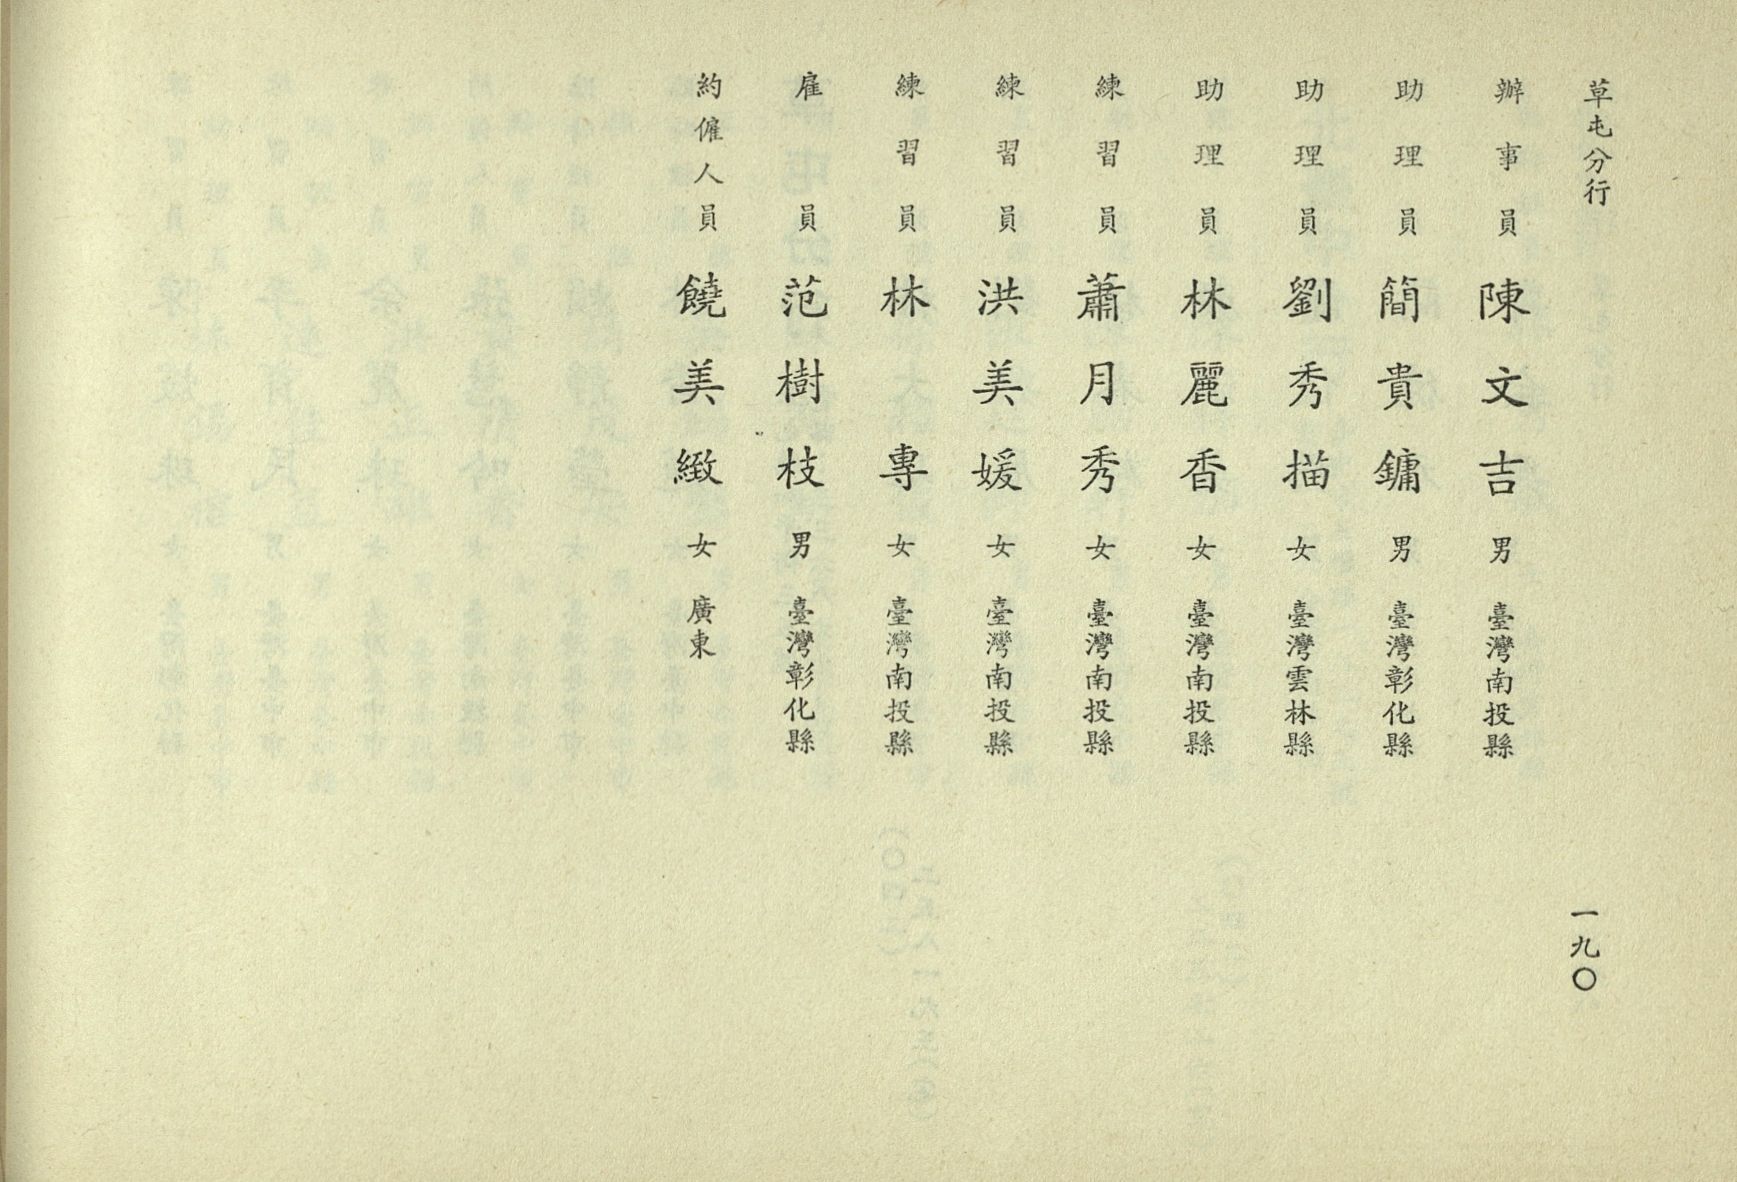 草屯分行
一九〇
辦事員 陳文吉 男 臺灣南投縣
助理員 簡貴鏞 男 臺灣彰化縣
助理員 劉秀描 女 臺灣雲林縣
助理員 林麗香 女 臺灣南投縣
練習員 蕭月秀 女 臺灣南投縣
練習員 洪美媛 女 臺灣南投縣
練習員 林專 女 臺灣南投縣
雇員 范樹枝 男 臺灣彰化縣
約僱人員 饒美緻 女 廣東